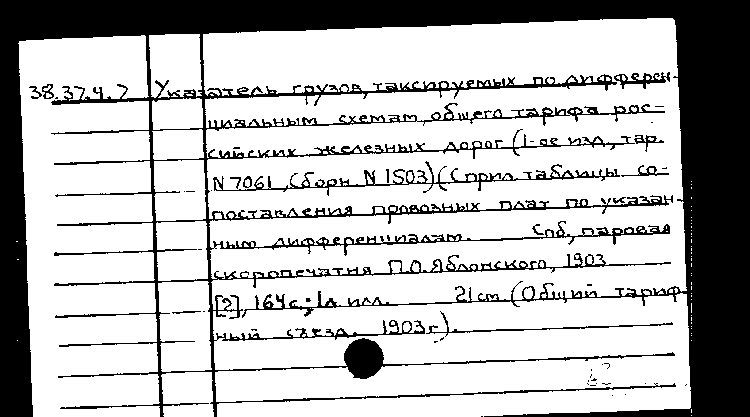 38.37.4.7 Указатель грузов, таксируемых по дифферен-
циальным схемам, общего тарифа рос-
сийских железных дорог (1-ое изд., тар.
N 7061, Сборн. N 1503) (С прил. таблицы со-
поставления провозных плат по указан-
ным дифференциалам. Спб, паровая
скоропечатня П.О. Яблонского, 1903
[2], 164 с.; 1 л. илл. 21 см (Общий тариф-
ный съезд. 1903 г.).